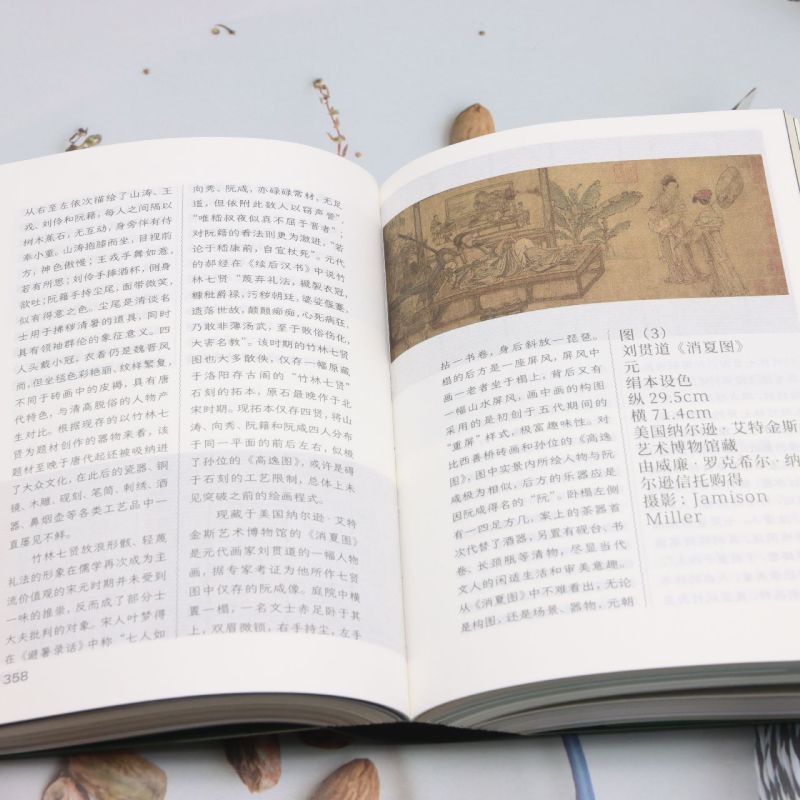 从右至左依次描绘了山涛、王
戎、刘伶和阮籍，每人之间隔以
树木蕉石，无互动，身旁伴有侍
奉小童。山涛抱膝而坐，目视前
方，神色傲慢；王戎手舞如意，
若有所思；刘伶手捧酒杯，侧身
欲吐；阮籍手持麈尾，面带微笑，
似有得意之色。麈尾是清谈名
士用于拂秽清暑的道具，同时
具有领袖群伦的象征意义。四
人头戴小冠，衣着仍是魏晋风
尚，但坐毯色彩艳丽、纹样繁复，
不同于砖画中的皮褥，具有唐
代特色，与清高脱俗的人物产
生对比。根据现存的以竹林七
贤为题材创作的器物来看，该
题材至晚于唐代起还被吸纳进
了大众文化，在此后的瓷器、铜
镜、木雕、砚刻、笔筒、刺绣、酒
器、鼻烟壶等各类工艺品中一
直屡见不鲜。
竹林七贤放浪形骸、轻蔑
礼法的形象在儒学再次成为主
流价值观的宋元时期并未受到
一味的推崇，反而成了部分士
大夫批判的对象。宋人叶梦得
在《避暑录话》中称“七人如
358
向秀、阮咸，亦碌碌常材，无足
道，但依附此数人以窃声誉”，
“唯嵇叔夜似真不屈于晋者”；
对阮籍的看法则更为激进，“若
论于嵇康前，自宜杖死”。元代
的郝经在《续后汉书》中说竹
林七贤“蔑弃礼法，褫裂衣冠，
糠秕爵禄，污秽朝廷，婆娑偃蹇，
遗落世故，颠颠痴痴，心死病狂，
乃敢非薄汤武，至于败俗伤化，
大害名教”。该时期的竹林七贤
图也大多散佚，仅存一幅原藏
于洛阳存古阁的“竹林七贤”
石刻的拓本，原石最晚作于北
宋时期。现拓本仅存四贤，将山
涛、向秀、阮籍和阮咸四人分布
于同一平面的前后左右，似极
了孙位的《高逸图》，或许是碍
于石刻的工艺限制，总体上未
见突破之前的绘画程式。
现藏于美国纳尔逊·艾特
金斯艺术博物馆的《消夏图》
是元代画家刘贯道的一幅人物
画，据专家考证为他所作七贤
图中仅存的阮咸像。庭院中横
置一榻，一名文士赤足卧于其
上，双眉微锁，右手持麈，左手
拈一书卷，身后斜放一琵琶。
榻的后方是一座屏风，屏风中
画一老者坐于榻上，背后又有
一幅山水屏风，画中画的构图
采用的是初创于五代期间的
“重屏”样式，极富趣味性。对
比西善桥砖画和孙位的《高逸
图》，图中实景内所绘人物与阮
咸极为相似，后方的乐器应是
因阮咸得名的“阮”。卧榻左侧
有一四足方几，案上的茶器首
次代替了酒器，另置有砚台、书
卷、长颈瓶等清物，尽显当代
文人的闲适生活和审美意趣。
从《消夏图》中不难看出，无论
是构图，还是场景、器物，元朝
图（3）
刘贯道《消夏图》
元
绢本设色
纵 29.5cm
横 71.4cm
美国纳尔逊·艾特金斯
艺术博物馆藏
由威廉·罗克希尔·纳
尔逊信托购得
摄影：Jamison
Miller